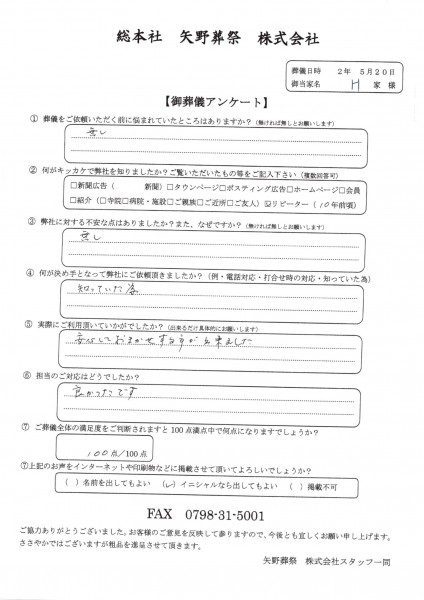 総本社 矢野葬祭 株式会社
葬儀日時 2年 5月20日
御当家名 H 家 様
【御葬儀アンケート】
① 葬儀をご依頼いただく前に悩まれていたところはありますか？(無ければ無しとお願いします)
無し
② 何がキッカケで弊社を知りましたか？ご覧いただいたもの等をご記入下さい(複数回答可)
□新聞広告（ 新聞）□タウンページ□ポスティング広告□ホームページ□会員
□紹介（□寺院□病院・施設□ご親族□ご近所□ご友人）☑リピーター（10年前頃）
③ 弊社に対する不安な点はありましたか？また、なぜですか？(無ければ無しとお願いします)
無し
④ 何が決め手となって弊社にご依頼頂きましたか？(例・電話対応・打合せ時の対応・知っていた為)
知っていた為
⑤ 実際にご利用頂いていかがでしたか？(出来るだけ具体的にお願いします)
安心しておまかせする事が出来ました
⑥ 担当のご対応はどうでしたか？
良かったです
⑦ ご葬儀全体の満足度をご判断されますと100点満点中で何点になりますでしょうか？
100点/100点
⑦上記のお声をインターネットや印刷物などに掲載させて頂いてよろしいでしょうか？
（ ）名前を出してもよい （✓）イニシャルなら出してもよい （ ）掲載不可
FAX 0798-31-5001
ご協力ありがとうございました。お客様のご意見を反映して参りますので、今後とも宜しくお願い申し上げます。
ささやかではございますが粗品を進呈させて頂きます。
矢野葬祭 株式会社スタッフ一同